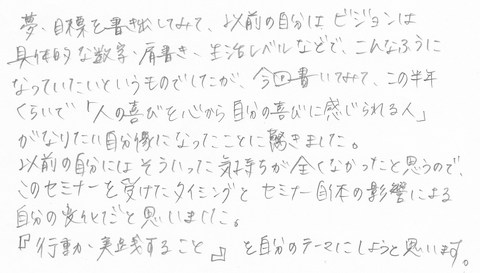 夢、目標を書き出してみて、以前の自分はビジョンは
具体的な数字・肩書き、生活レベルなどで、こんなふうに
なっていたいというものでしたが、今回書いてみて、この半年
くらいで「人の喜びを心から自分の喜びに感じられる人」
がなりたい自分像になってたことに驚きました。
以前の自分にはそういった気持ちが全くなかったと思うので、
このセミナーを受けたタイミングとセミナー自体の影響による
自分の変化だと思いました。
『行動か実践すること』を自分のテーマにしようと思います。